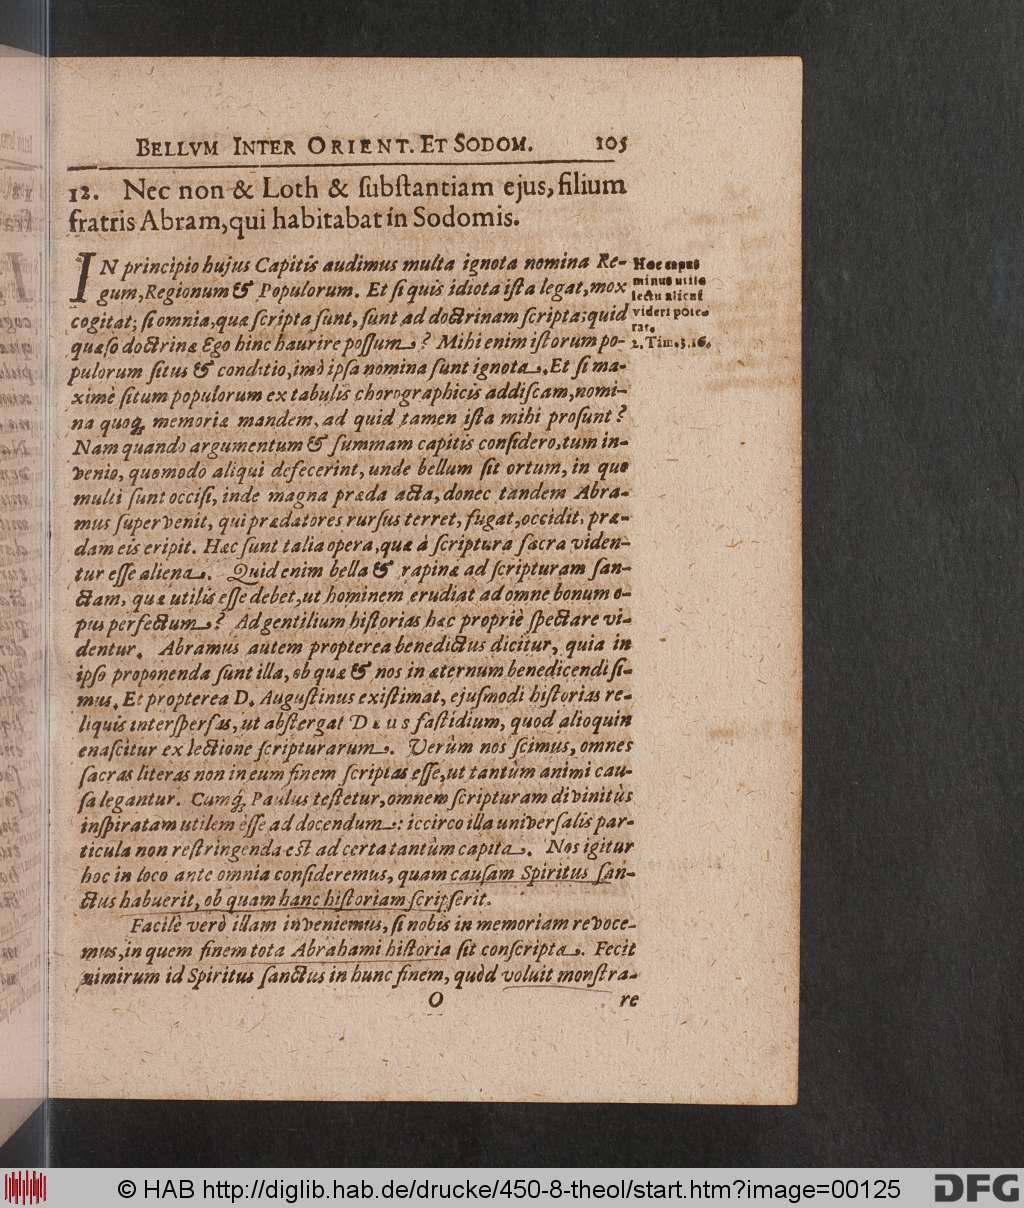 BELLVM INTER ORIENT. ET SODOM. 105
12. Nec non & Loth & ſubſtantiam ejus, filium
fratris Abram, qui habitabat in Sodomis.
IN principio hujus Capitis audimus multa ignota nomina Re-
gum, Regionum & Populorum. Et ſi quis idiota iſta legat, mox
cogitat; ſi omnia, quæ ſcripta ſunt, ſunt ad doctrinam ſcripta; quid
quæſo doctrinæ Ego hinc haurire poſſum? Mihi enim iſtorum po-
pulorum ſitus & conditio, imò ipſa nomina ſunt ignota. Et ſi ma-
ximè ſitum populorum ex tabulis chorographicis addiſcam, nomi-
na quoq; memoriæ mandem, ad quid tamen iſta mihi proſunt?
Nam quando argumentum & ſummam capitis conſidero, tum in-
venio, quomodo aliqui defecerint, unde bellum ſit ortum, in quo
multi ſunt occiſi, inde magna præda acta, donec tandem Abra-
mus ſupervenit, qui prædatores rurſus terret, fugat, occidit, præ-
dam eis eripit. Hæc ſunt talia opera, quæ à ſcriptura ſacra viden-
tur eſſe aliena. Quid enim bella & rapinæ ad ſcripturam ſan-
ctam, quæ utilis eſſe debet, ut hominem erudiat ad omne bonum o-
pus perfectum? Ad gentilium hiſtorias hæc propriè ſpectare vi-
dentur. Abramus autem propterea benedictus dicitur, quia in
ipſo proponenda ſunt illa, ob quæ & nos in æternum benedicendi ſi-
mus. Et propterea D. Auguſtinus exiſtimat, ejuſmodi hiſtorias re-
liquis interſperſas, ut abſtergat DEUS faſtidium, quod alioquin
enaſcitur ex lectione ſcripturarum. Verùm nos ſcimus, omnes
ſacras literas non in eum finem ſcriptas eſſe, ut tantùm animi cau-
ſa legantur. Cumq; Paulus teſtetur, omnem ſcripturam divinitùs
inſpiratam utilem eſſe ad docendum: iccirco illa univerſalis par-
ticula non reſtringenda eſt ad certa tantùm capita. Nos igitur
hoc in loco ante omnia conſideremus, quam cauſam Spiritus ſan-
ctus habuerit, ob quam hanc hiſtoriam ſcripſerit.
Facilè verò illam inveniemus, ſi nobis in memoriam revoce-
mus, in quem finem tota Abrahami hiſtoria ſit conſcripta. Fecit
nimirum id Spiritus ſanctus in hunc finem, quòd voluit monſtra-
O re
Hoc caput
minus utile
lectu alicui
videri pote-
rat.
2. Tim. 3. 16.
© HAB http://diglib.hab.de/drucke/450-8-theol/start.htm?image=00125
DFG